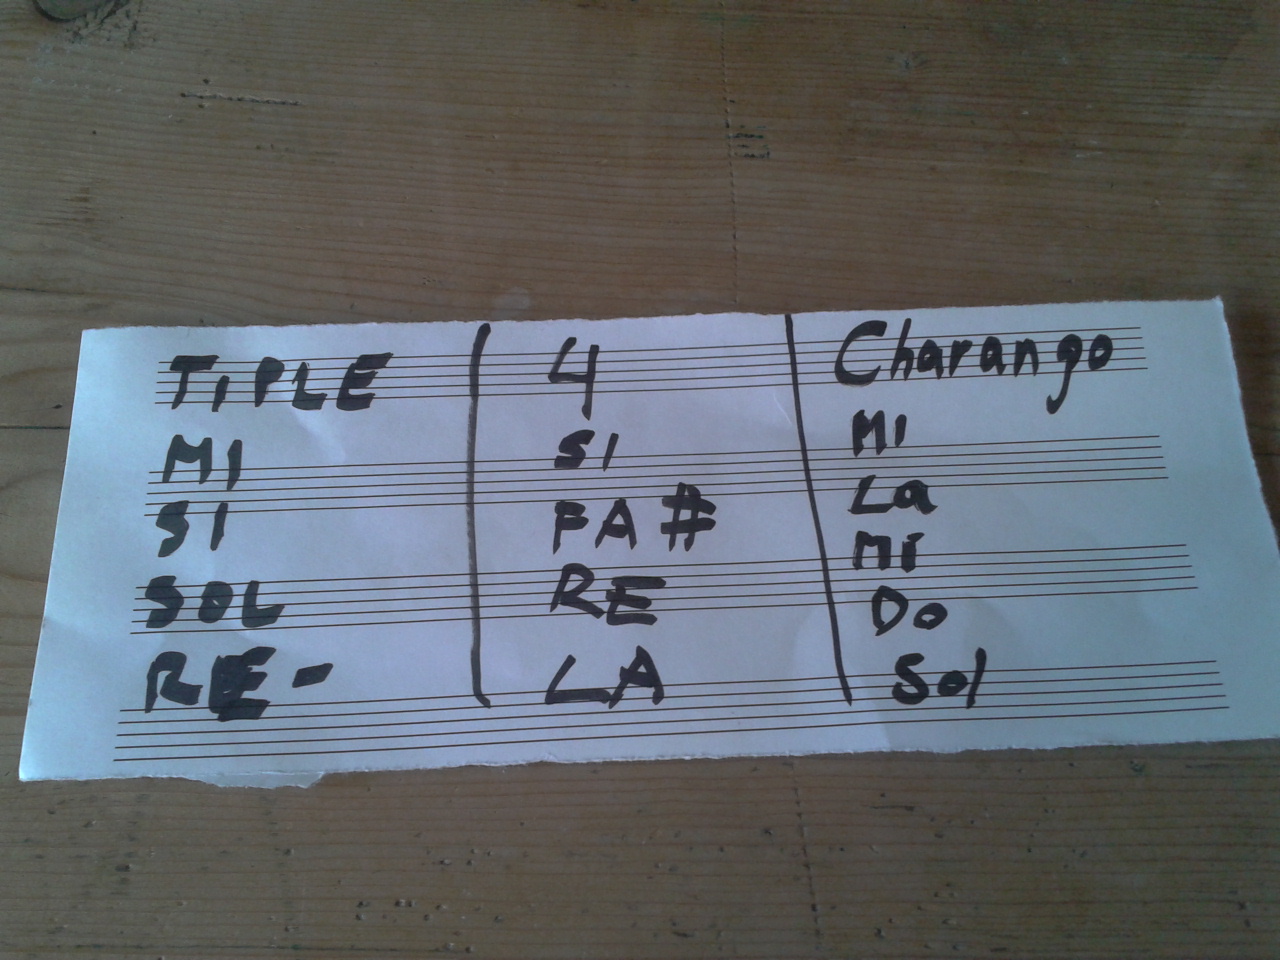 TIPLE | 4 | Charango
MI | SI | MI
SI | FA # | La
SOL | RE | MI
RE - | LA | Do
Sol